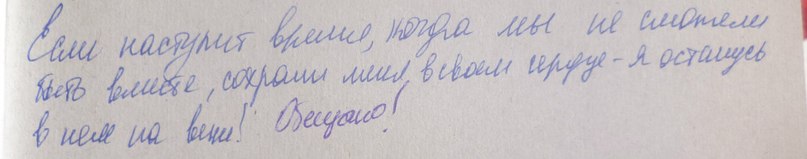 Если наступит время, когда мы не сможели
быть вместе, сохрани меня, в своем сердце - я останусь
в нем на веки! Обещаю!